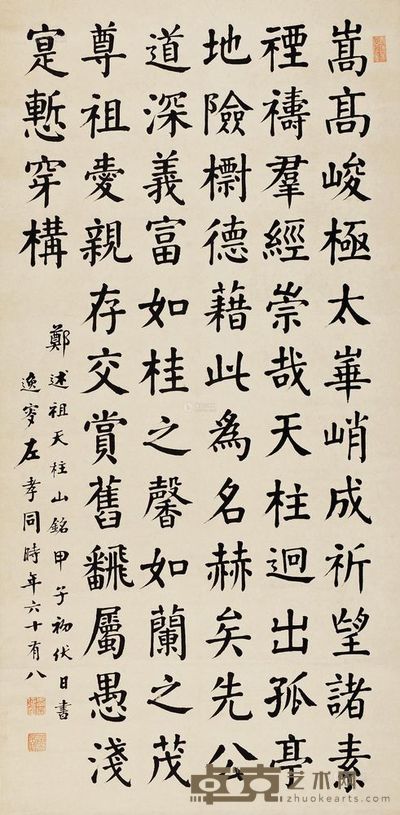 嵩髙峻極太崋峭成祈望諸素
禋禱羣經崇哉天柱迥出孤亭
地險德藉此為名赫矣先公
道深義富如桂之馨如蘭之茂
尊祖愛親存交賞舊飜屬愚淺
寔慙穿構
鄭述祖天柱山銘甲子初伏日書
逸叜左孝同時年六十有八
卓克艺术网
zhuokearts.com